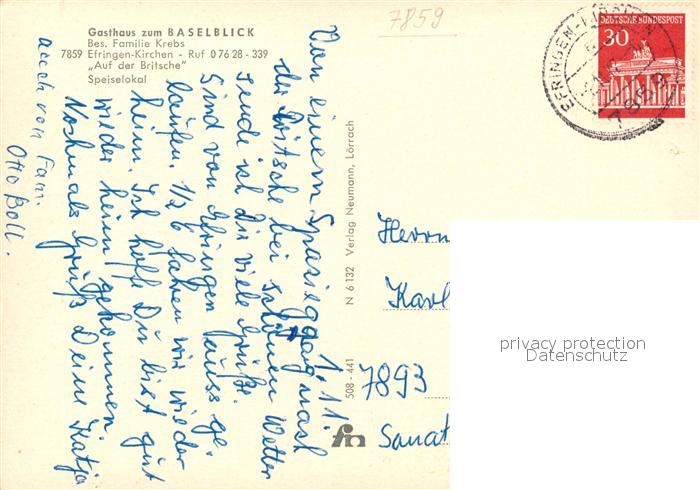 Gasthaus zum BASELBLICK
Bes. Familie Krebs
7859 Efringen-Kirchen - Ruf 0 76 28 - 339
„Auf der Britsche"
Speiselokal
7859
DEUTSCHE BUNDESPOST
30
EFRINGEN-KIRCHEN
7859
1.11.
Von einem Spaziergang nach
der Britsche bei schönen Wetter
sende ich Dir viele Grüße.
Sind von Efringen heuss ge-
laufen. 1/2 6 fahren wir wieder
heim. Ich hoffe Du bist gut
wieder heim gekommen.
Nochmals Gruß Deine Katja
auch von Fam.
Otto Boll.
N 6 132 Verlag Neumann, Lörrach
508-441
fn
Herrn
Karl
7893
Sanat
privacy protection
Datenschutz